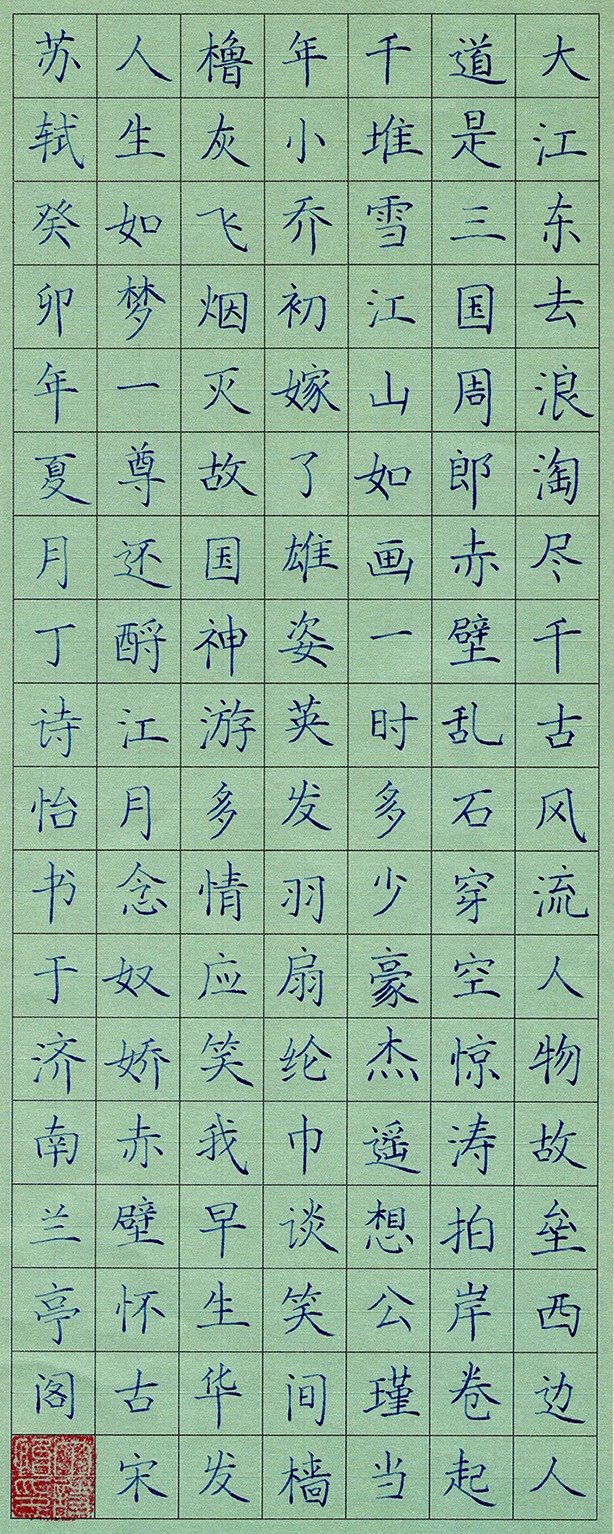 大江东去浪淘尽千古风流人物故垒西边人
道是三国周郎赤壁乱石穿空惊涛拍岸卷起
千堆雪江山如画一时多少豪杰遥想公瑾当
年小乔初嫁了雄姿英发羽扇纶巾谈笑间樯
橹灰飞烟灭故国神游多情应笑我早生华发
人生如梦一尊还酹江月念奴娇赤壁怀古宋
苏轼癸卯年夏月丁诗怡书于济南兰亭阁